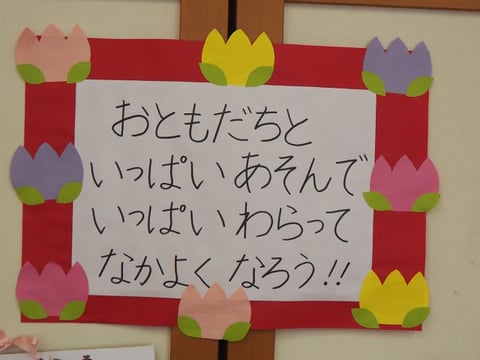 おともだちと
いっぱい あそんで
いっぱい わらって
なかよく なろう!!